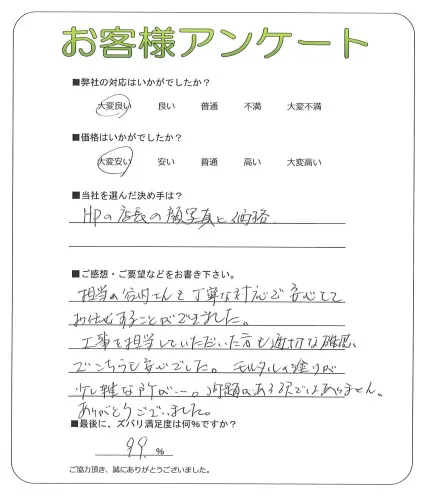 お客様アンケート
■弊社の対応はいかがでしたか?
大変良い 良い 普通 不満 大変不満
■価格はいかがでしたか?
大変安い 安い 普通 高い 大変高い
■当社を選んだ決め手は?
HPの店長の顔写真と価格
■ご感想・ご要望などをお書き下さい。
担当の さんも丁寧な対応で安心して
お任せすることができました。
工事を担当していただいた方も適切な確認
でこちらも安心でした。モルタルの塗りが
少し雑な所が…。問題のある訳ではありません。
ありがとうございました。
■最後に、ズバリ満足度は何%ですか?
99 %
ご協力頂き、誠にありがとうございました。